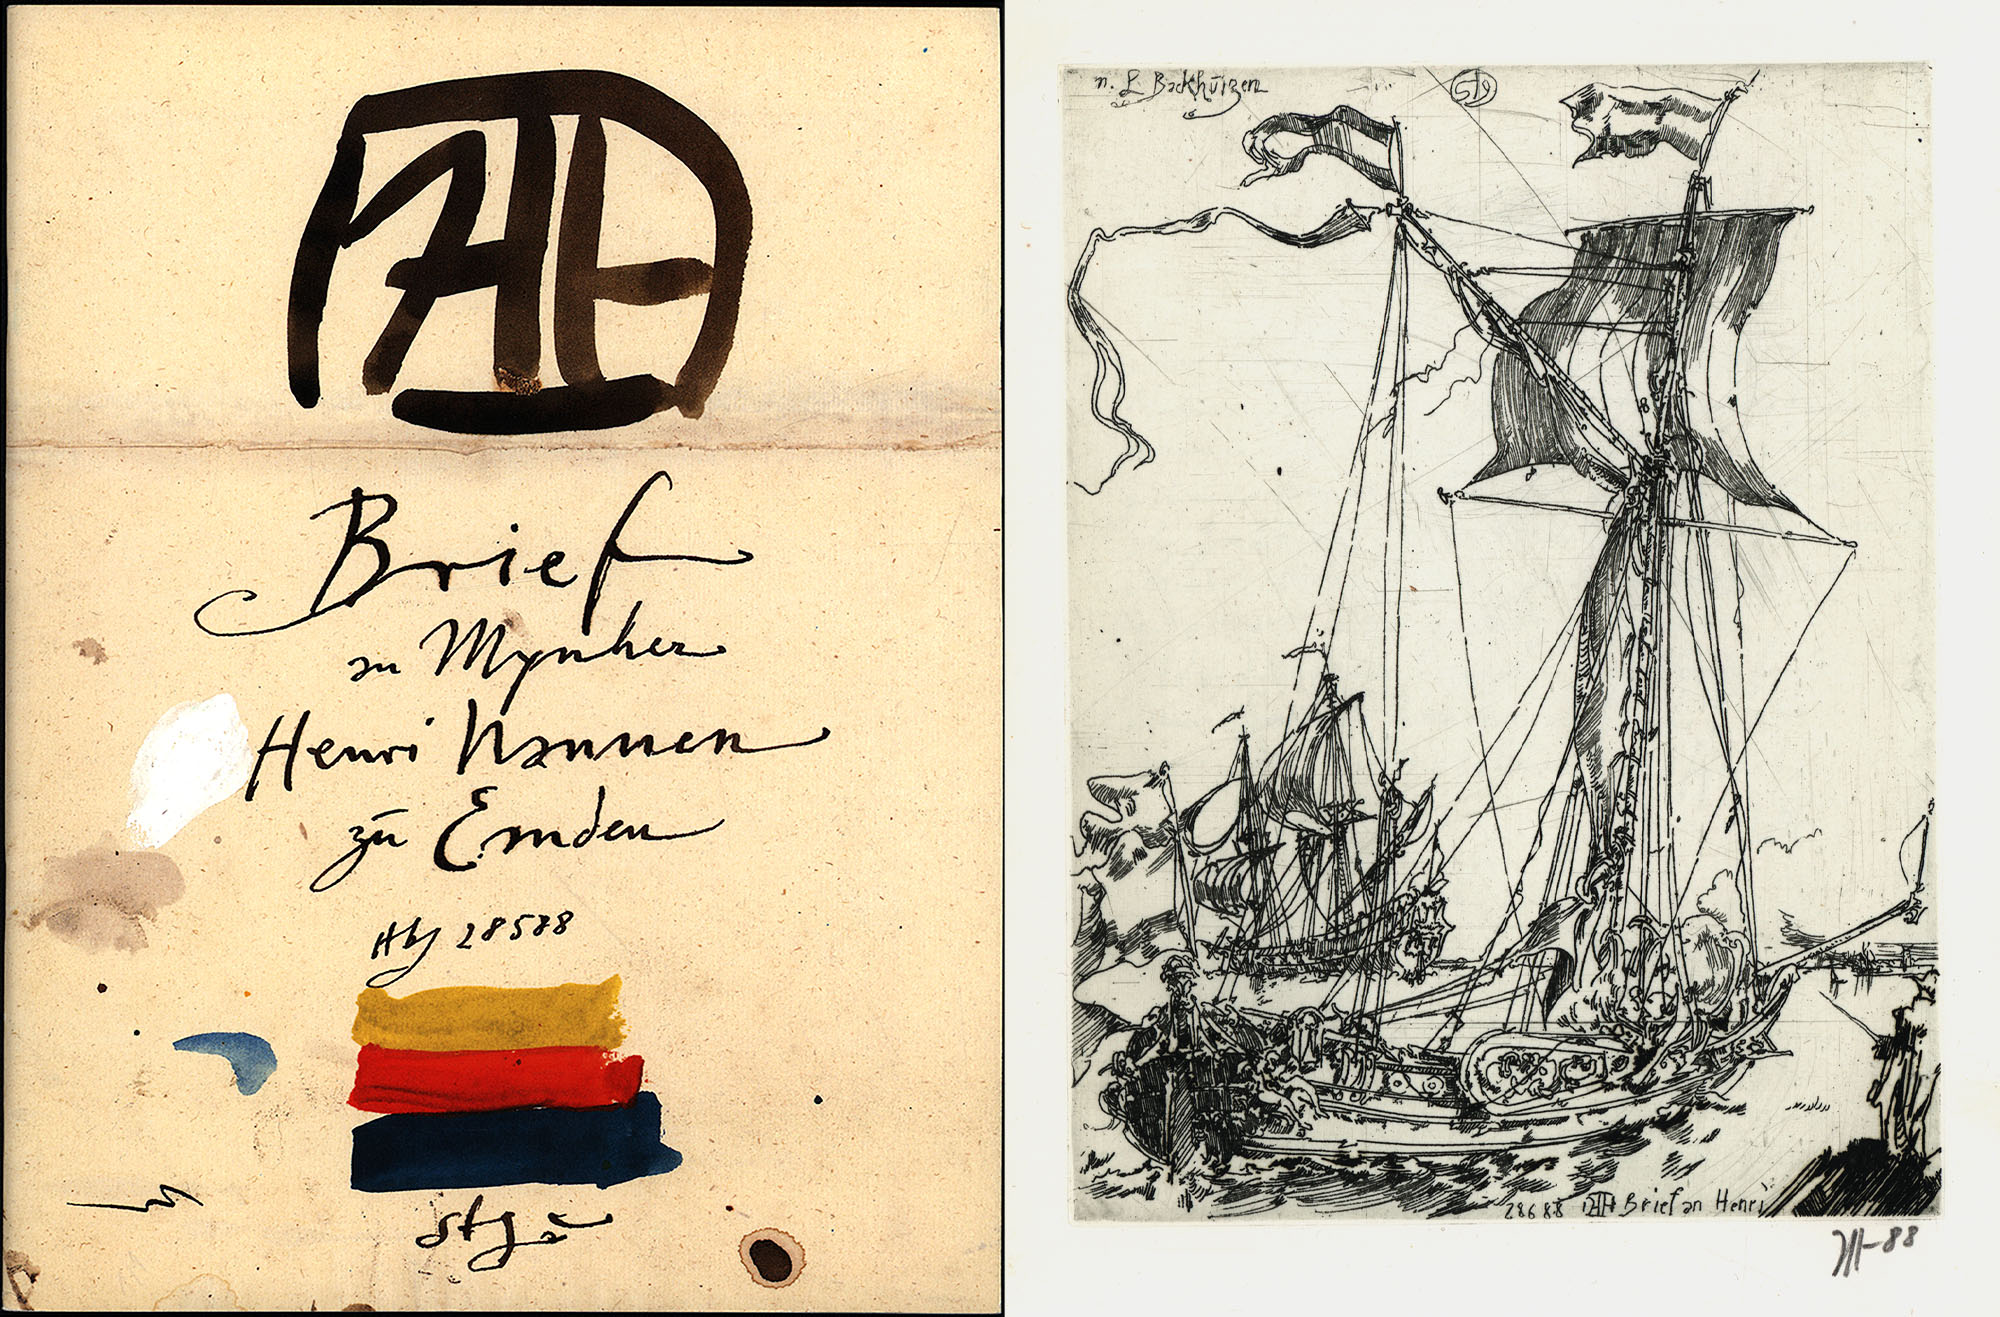 Brief
an Mynher
Henri Nannen
zu Emden
Hbg 28588
n. L Backhuizen
28688 Brief an Henri
88